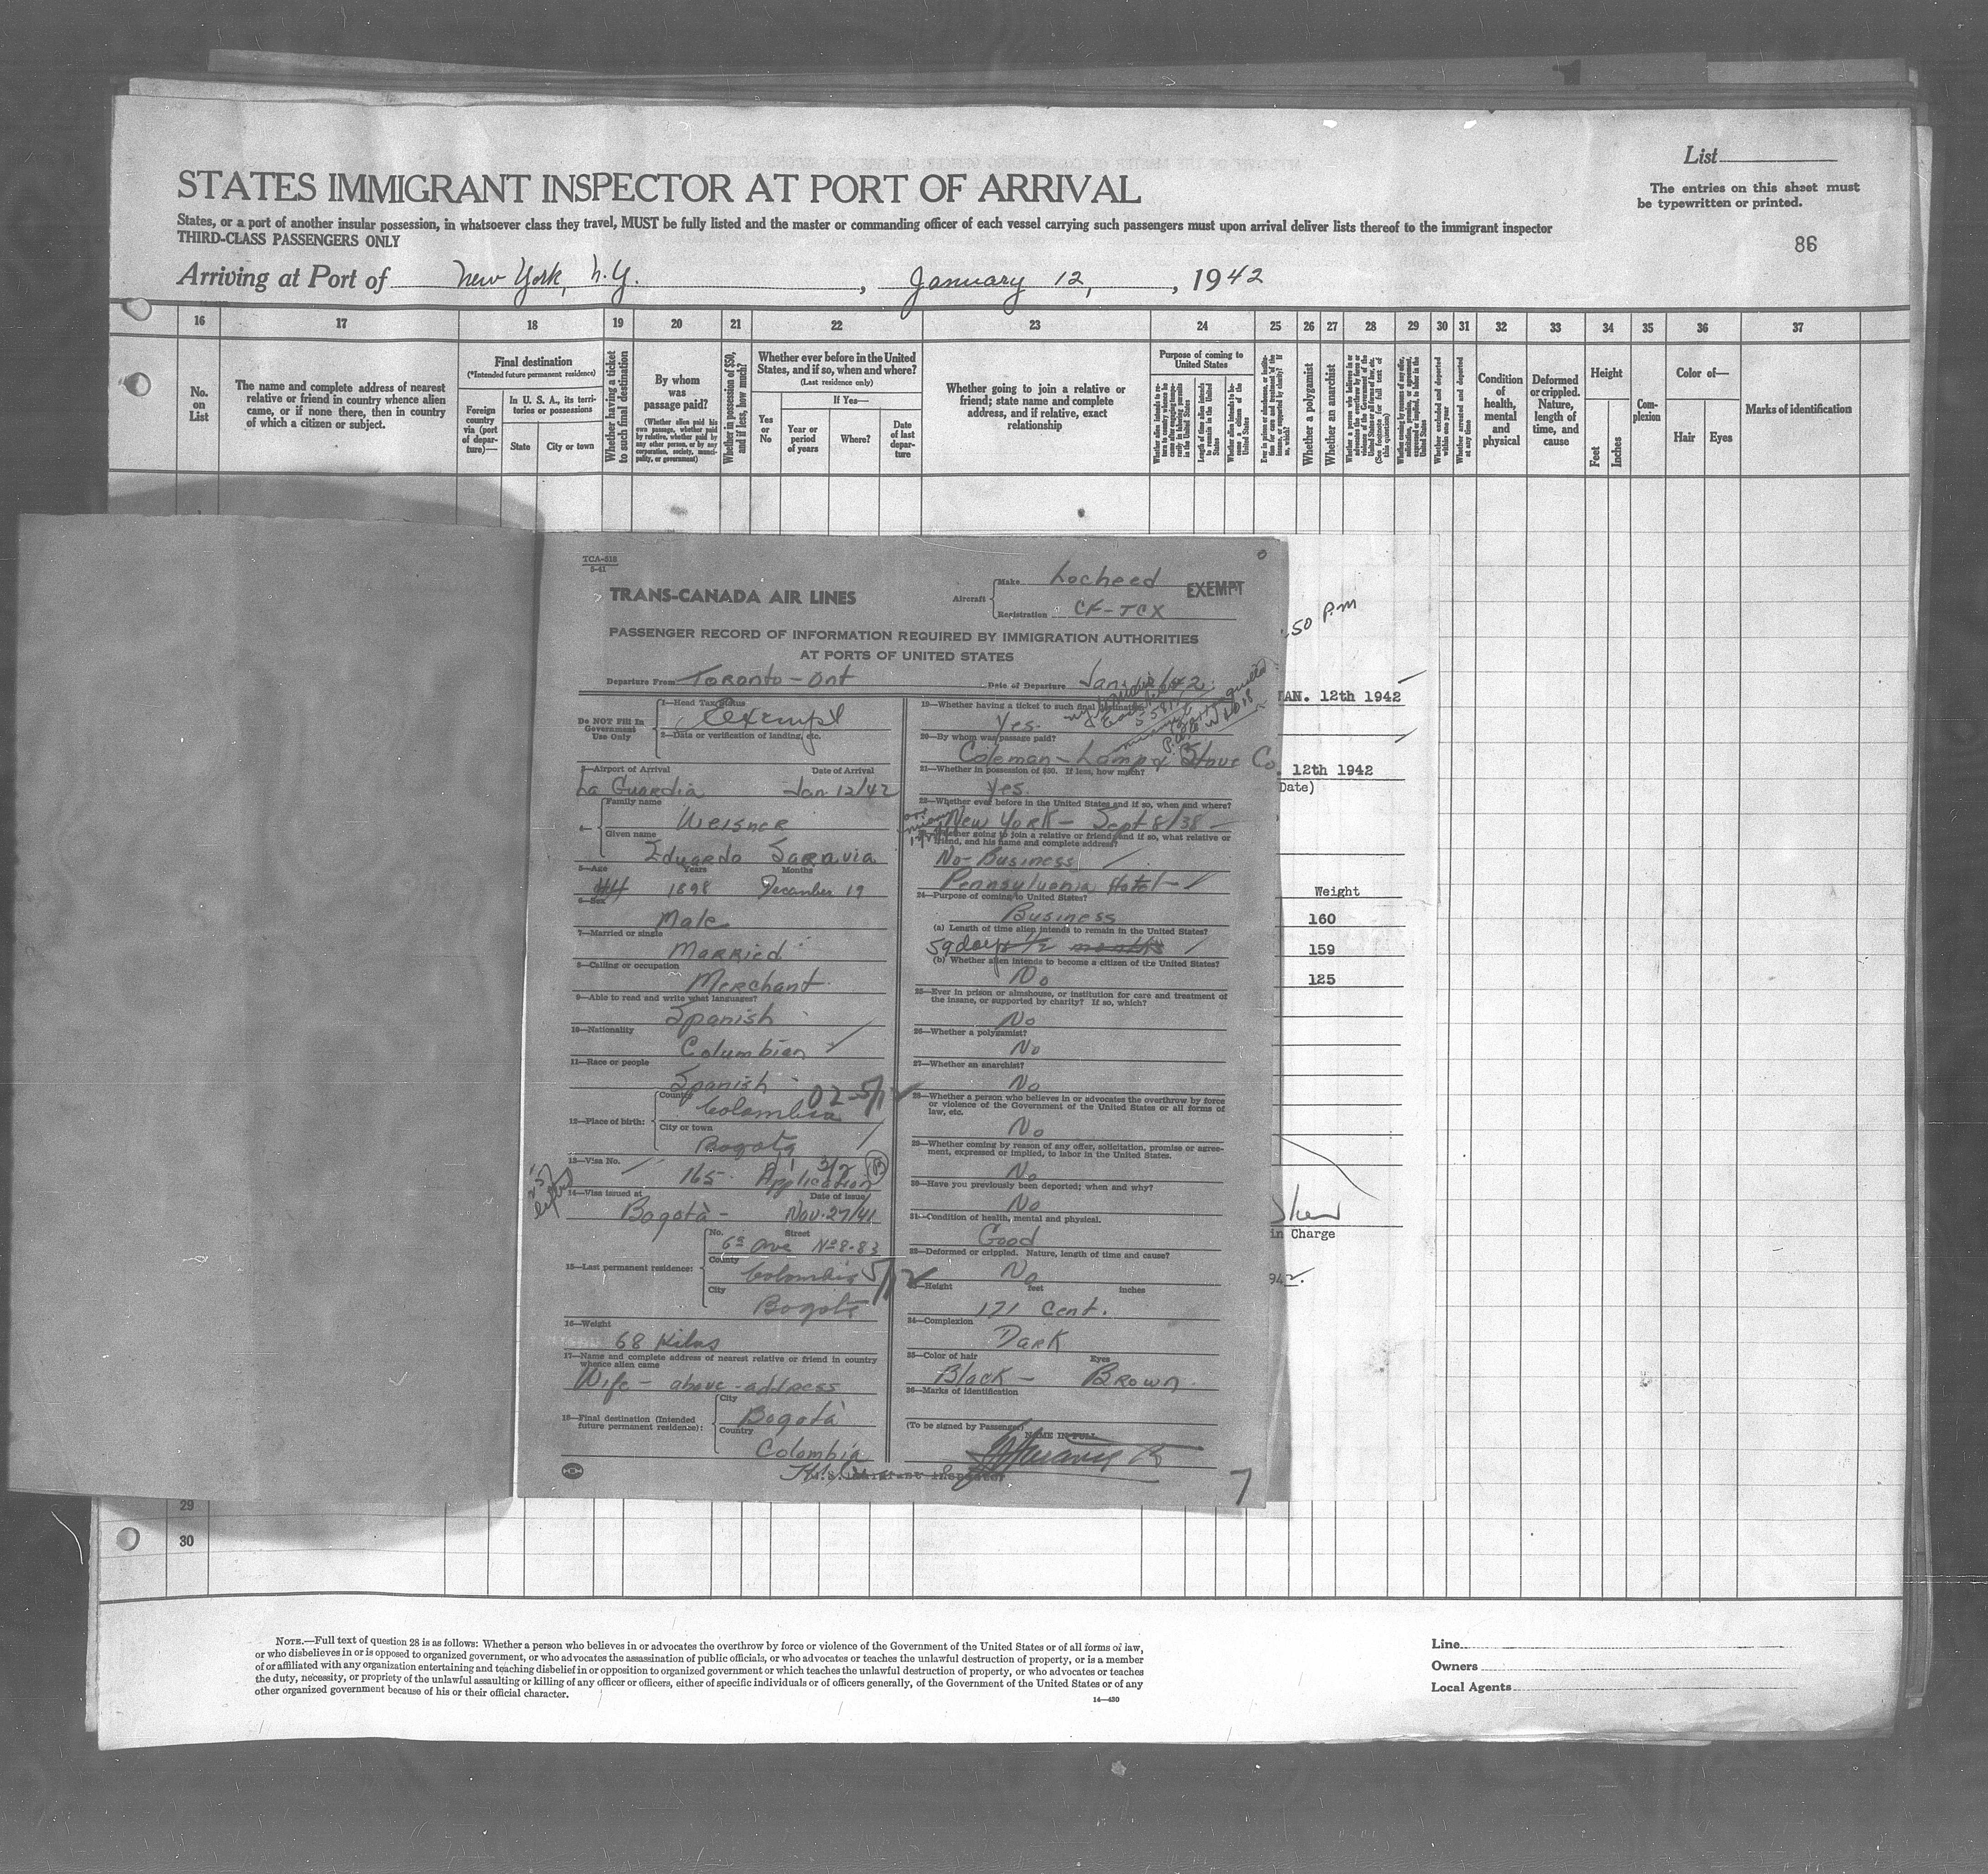 List
STATES IMMIGRANT INSPECTOR AT PORT OF ARRIVAL
The entries on this sheet must
be typewritten or printed.
States, or a port of another insular possession, in whatsoever class they travel, MUST be fully listed and the master or commanding officer of each vessel carrying such passengers must upon arrival deliver lists thereof to the immigrant inspector
THIRD-CLASS PASSENGERS ONLY
86
Arriving at Port of New York, N.Y., January 12, 1942
16 17 18 19 20 21 22 23 24 25 26 27 28 29 30 31 32 33 34 35 36 37
No. on List
The name and complete address of nearest
relative or friend in country whence alien
came, or if none there, then in country
of which a citizen or subject.
Final destination
(*Intended future permanent residence)
Foreign country via (port of departure)—
In U. S. A., its territories or possessions
State
City or town
Whether having a ticket to such final destination
By whom was passage paid?
(Whether alien paid his own passage, whether paid by relative, whether paid by any other person, or by any corporation, society, municipality, or government)
Whether in possession of $50, and if less, how much?
Whether ever before in the United
States, and if so, when and where?
(Last residence only)
Yes or No
If Yes—
Year or period of years
Where?
Date of last departure
Whether going to join a relative or
friend; state name and complete
address, and if relative, exact
relationship
Purpose of coming to United States
Whether a polygamist
Whether an anarchist
Condition of health, mental and physical
Deformed or crippled. Nature, length of time, and cause
Height
Feet
Inches
Complexion
Color of—
Hair
Eyes
Marks of identification
TCA-518
5-41
TRANS-CANADA AIR LINES
Aircraft
Make Locheed
Registration CF-TCX
EXEMPT
PASSENGER RECORD OF INFORMATION REQUIRED BY IMMIGRATION AUTHORITIES
AT PORTS OF UNITED STATES
Departure From Toronto - Ont
Date of Departure Jan. 12/42
Do NOT Fill In
Government
Use Only
1—Head Tax Status
Exempt
2—Data or verification of landing, etc.
3—Airport of Arrival Date of Arrival
La Guardia Jan 12/42
4—
Family name
Weisner
Given name
Eduardo Saravia
5—Age Years Months
44 1898 December 19
6—Sex
Male
7—Married or single
Married
8—Calling or occupation
Merchant
9—Able to read and write what languages?
Spanish
10—Nationality
Columbian
11—Race or people
Spanish
02-5/12
12—Place of birth:
Country
Colombia
City or town
Bogota
13—Visa No.
165 Application 3/2 B
14—Visa issued at Date of issue
Bogotà - Nov. 27/41
15—Last permanent residence:
No. Street
6a Ave No 8-83
County
Colombia 5/12
City
Bogota
16—Weight
68 Kilos
17—Name and complete address of nearest relative or friend in country
whence alien came
Wife - above address
18—Final destination (Intended
future permanent residence):
City
Bogotà
Country
Colombia
19—Whether having a ticket to such final destination
Yes.
20—By whom was passage paid?
Coleman - Lamp & Stove Co.
21—Whether in possession of $50. If less, how much?
Yes.
22—Whether ever before in the United States and if so, when and where?
New York - Sept 8/38
23—Whether going to join a relative or friend, and if so, what relative or
friend, and his name and complete address?
No - Business
Pennsylvania Hotel
24—Purpose of coming to United States?
Business
(a) Length of time alien intends to remain in the United States?
59 days 1/2 months
(b) Whether alien intends to become a citizen of the United States?
No
25—Ever in prison or almshouse, or institution for care and treatment of
the insane, or supported by charity? If so, which?
No
26—Whether a polygamist?
No
27—Whether an anarchist?
No
28—Whether a person who believes in or advocates the overthrow by force
or violence of the Government of the United States or all forms of
law, etc.
No
29—Whether coming by reason of any offer, solicitation, promise or agreement, expressed or implied, to labor in the United States.
No
30—Have you previously been deported; when and why?
No
31—Condition of health, mental and physical.
Good
32—Deformed or crippled. Nature, length of time and cause?
No
33—Height feet inches
171 Cent.
34—Complexion
Dark
35—Color of hair Eyes
Black - Brown
36—Marks of identification
(To be signed by Passenger)
NAME IN FULL
U.S. Immigrant Inspector
7
.50 P.M
JAN. 12th 1942
12th 1942
Date)
Weight
160
159
125
in Charge
942.
29
30
NOTE.—Full text of question 28 is as follows: Whether a person who believes in or advocates the overthrow by force or violence of the Government of the United States or of all forms of law,
or who disbelieves in or is opposed to organized government, or who advocates the assassination of public officials, or who advocates or teaches the unlawful destruction of property, or is a member
of or affiliated with any organization entertaining and teaching disbelief in or opposition to organized government or which teaches the unlawful destruction of property, or who advocates or teaches
the duty, necessity, or propriety of the unlawful assaulting or killing of any officer or officers, either of specific individuals or of officers generally, of the Government of the United States or of any
other organized government because of his or their official character.
14—430
Line
Owners
Local Agents